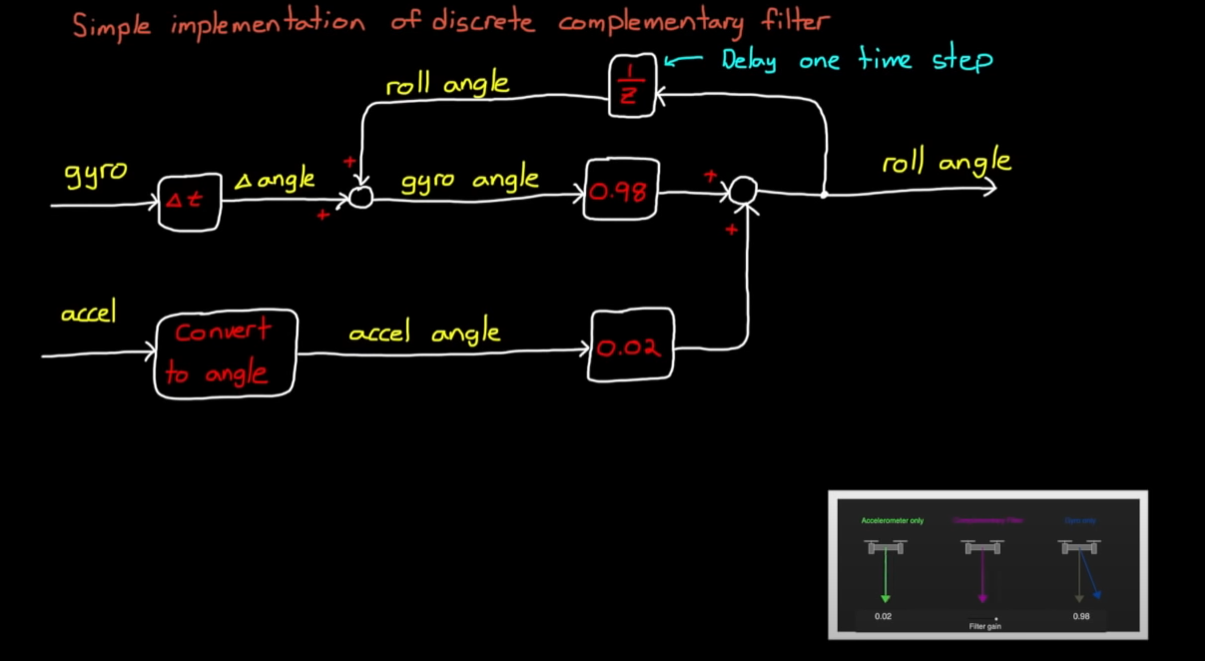 Simple implementation of discrete complementary filter
Delay one time step
roll angle
1
Z
gyro
Δt
Δ angle
+
+
gyro angle
0.98
+
+
roll angle
accel
Convert
to angle
accel angle
0.02
Accelerometer only
Complementary Filter
Gyro only
0.02
0.98
Filter gain